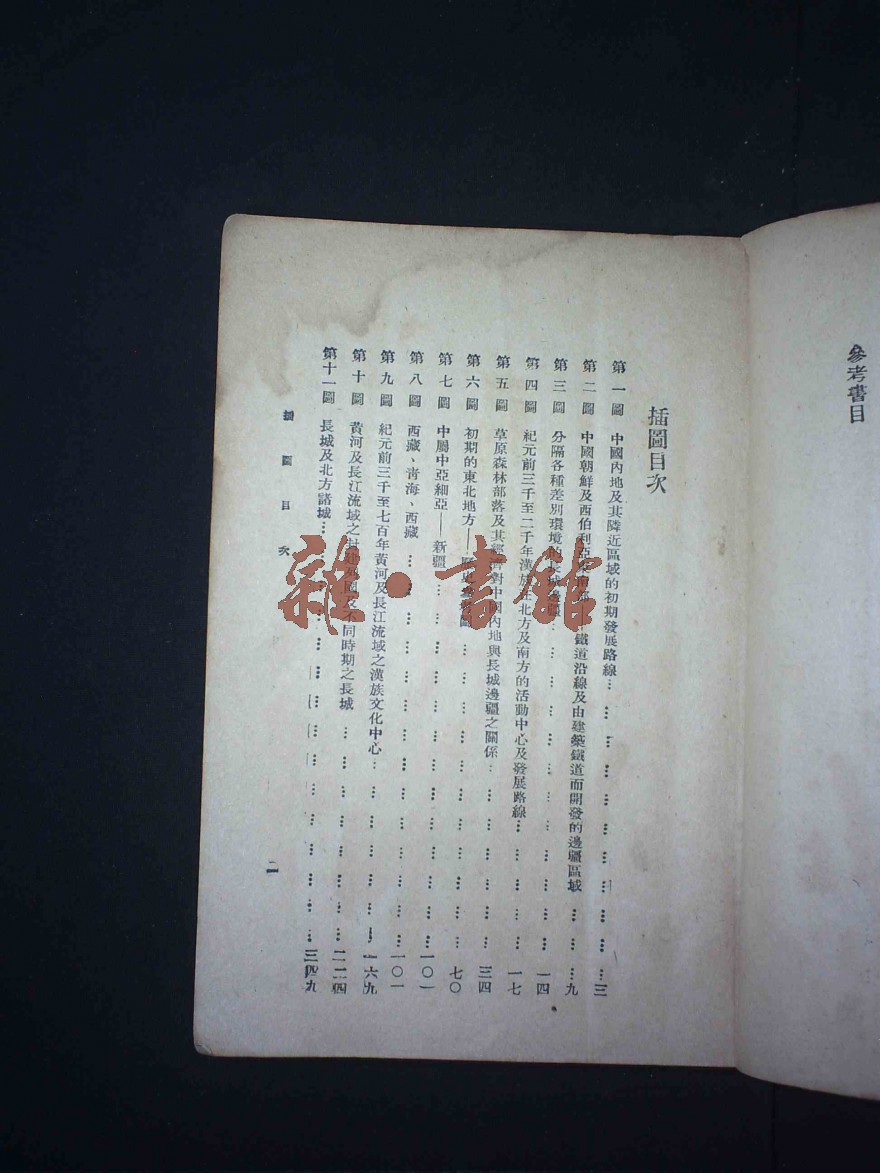 參考書目
插圖目次
第一圖 中國內地及其隣近區域的初期發展路線…三
第二圖 中國朝鮮及西伯利亞東南部——鐵道沿線及由建築鐵道而開發的邊疆區域…九
第三圖 分隔各種差別環境的長城邊疆…一四
第四圖 紀元前三千至二千年漢族在北方及南方的活動中心及發展路線…一七
第五圖 草原森林部落及其經濟對中國內地與長城邊疆之關係…三四
第六圖 初期的東北地方——歷史…七〇
第七圖 中屬中亞細亞——新疆…一〇一
第八圖 西藏、青海、西藏…一〇一
第九圖 紀元前三千至七百年黃河及長江流域之漢族文化中心…一六九
第十圖 黃河及長江流域之封建列國及不同時期之長城…二二四
第十一圖 長城及北方諸城…三四九
插圖目次
二
雜·書館